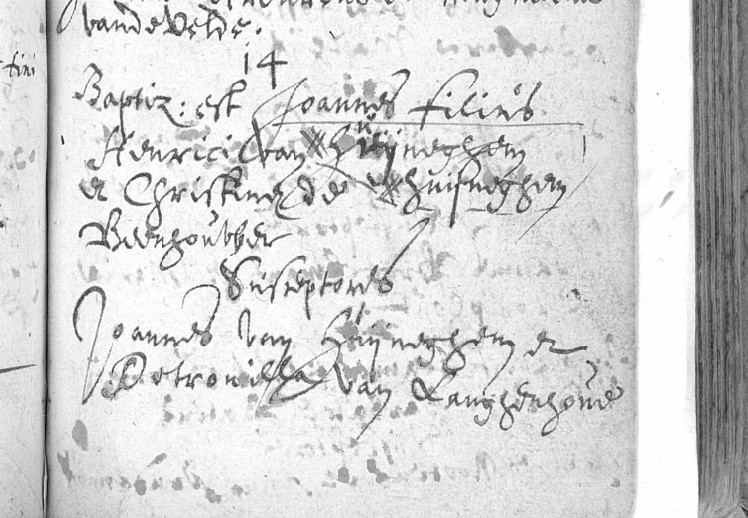 vandevelde.
14
Baptiz: est Joannes filius
Henrici van Huijneghem
et Christinæ de Huijneghem
Beenhouwer
Susceptores
Joannes van Huijneghem et
Petronilla van Langhenhove